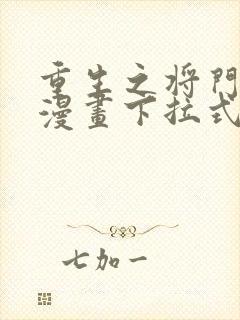 重生之将門
漫畫下拉式
七加一